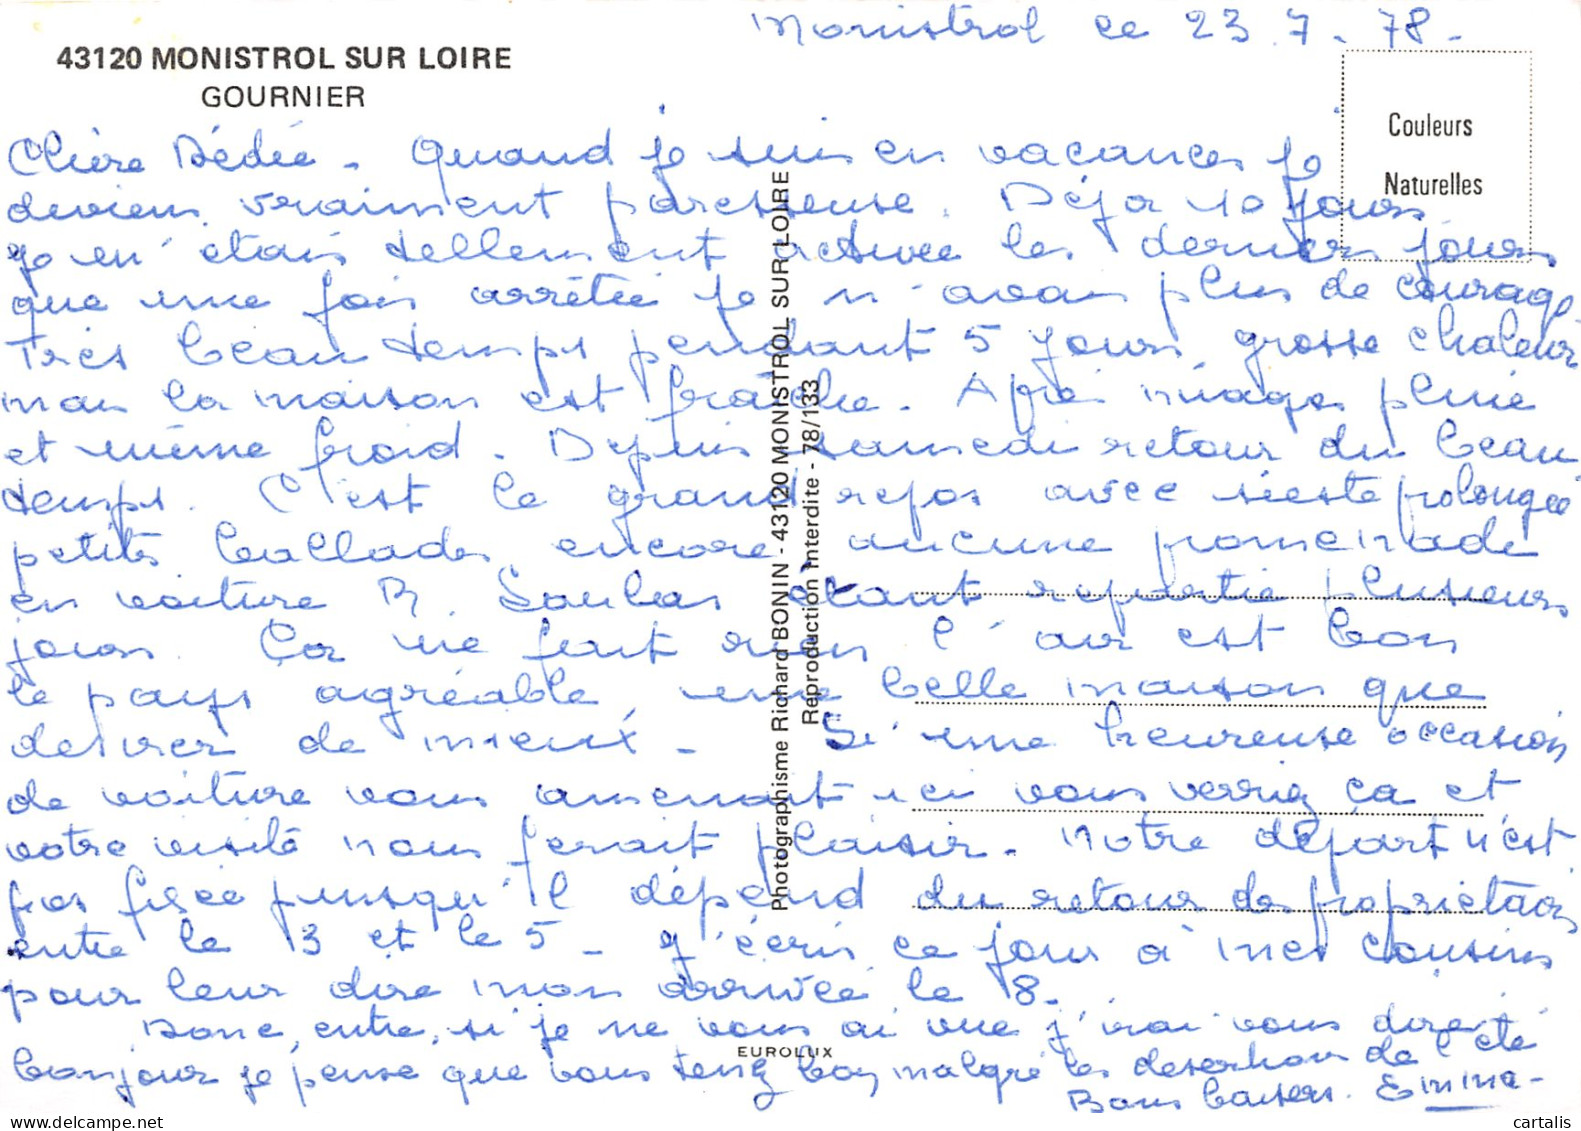 Monistrol ce 23.7.78.
43120 MONISTROL SUR LOIRE
GOURNIER
Couleurs
Naturelles
Chère Dédée - Quand je suis en vacances je
deviens vraiment paresseuse. Déjà 10 jours
je m'étais tellement activée les derniers jours
que une fois arrêtée je n'avais plus de courage
Très beau temps pendant 5 jours, grosse chaleur
mais la maison est fraîche. Après nuages pluie
et même froid. Depuis samedi retour du beau
temps. C'est le grand repos avec sieste prolongée
petites ballades encore aucune promenade
en voiture R. étant repartie plusieurs
jours. Ça ne fait rien l'air est bon
le pays agréable, une belle maison que
désirer de mieux. Si une heureuse occasion
de voiture vous amenait ici vous verriez ça et
votre visite nous ferait plaisir. Notre départ n'est
pas fixé puisqu'il dépend du retour des propriétaires
entre le 3 et le 5 - J'écris ce jour à mes cousins
pour leur dire mon arrivée le 8.
Donc, entre, si je ne vous ai vue j'irai vous dire
bonjour je pense que vous tenez bon malgré les de l'été
Bons baisers. Emma-
Photographisme Richard BONIN - 43120 MONISTROL SUR LOIRE
Reproduction Interdite - 78/133
EUROLUX
cartalis